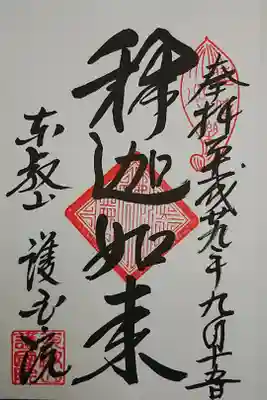 奉拝 平成廿九年九月十五日
釈迦如来
東叡山 護国院